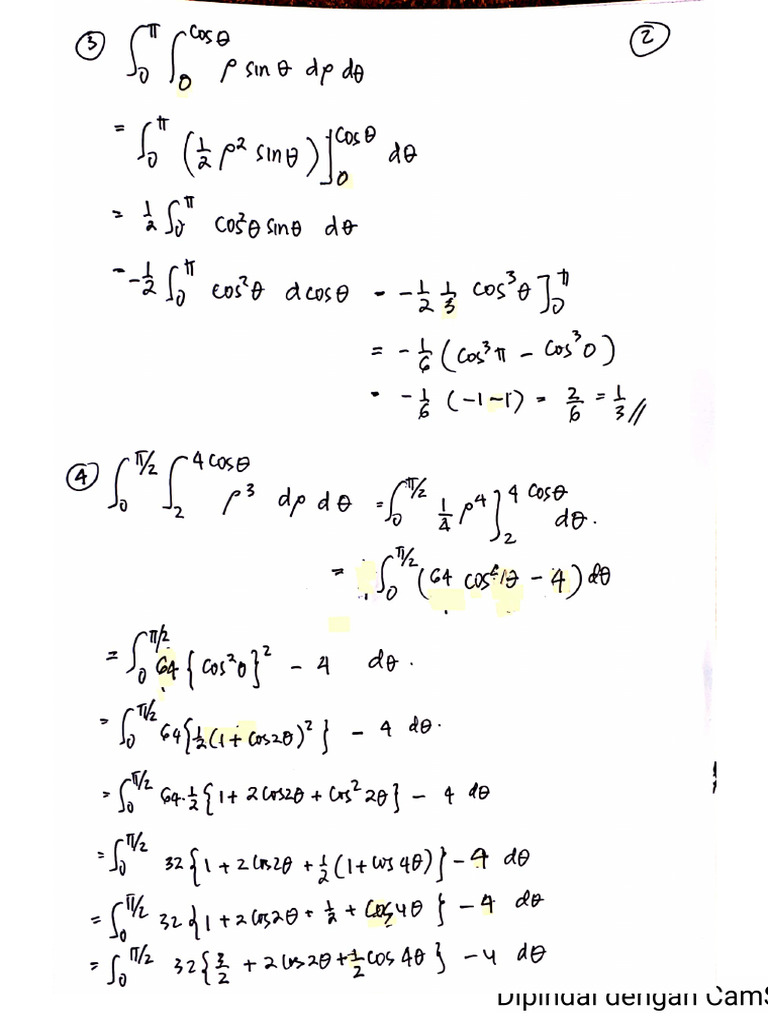 ②
③ ∫₀^π ∫₀^cosθ ρ sin θ dρ dθ
= ∫₀^π (½ ρ² sinθ)]₀^cosθ dθ
= ½ ∫₀^π cos²θ sinθ dθ
= -½ ∫₀^π cos²θ dcosθ = -½ ⅓ cos³θ]₀^π
= -⅙ (cos³π - cos³0)
= -⅙ (-1-1) = 2/6 = 1/3 //
④ ∫₀^π/2 ∫₂^4cosθ ρ³ dρ dθ = ∫₀^π/2 ¼ ρ⁴]₂^4cosθ dθ.
= ∫₀^π/2 (64 cos⁴θ - 4) dθ
= ∫₀^π/2 64 {cos²θ}² - 4 dθ.
= ∫₀^π/2 64{½(1 + cos2θ)²} - 4 dθ.
= ∫₀^π/2 64·½{1 + 2cos2θ + cos² 2θ} - 4 dθ
= ∫₀^π/2 32{1 + 2cos2θ + ½(1+cos 4θ)} - 4 dθ
= ∫₀^π/2 32{1 + 2cos2θ + ½ + cos4θ} - 4 dθ
= ∫₀^π/2 32{3/2 + 2cos2θ + ½cos 4θ} - 4 dθ
Dipindai dengan CamS